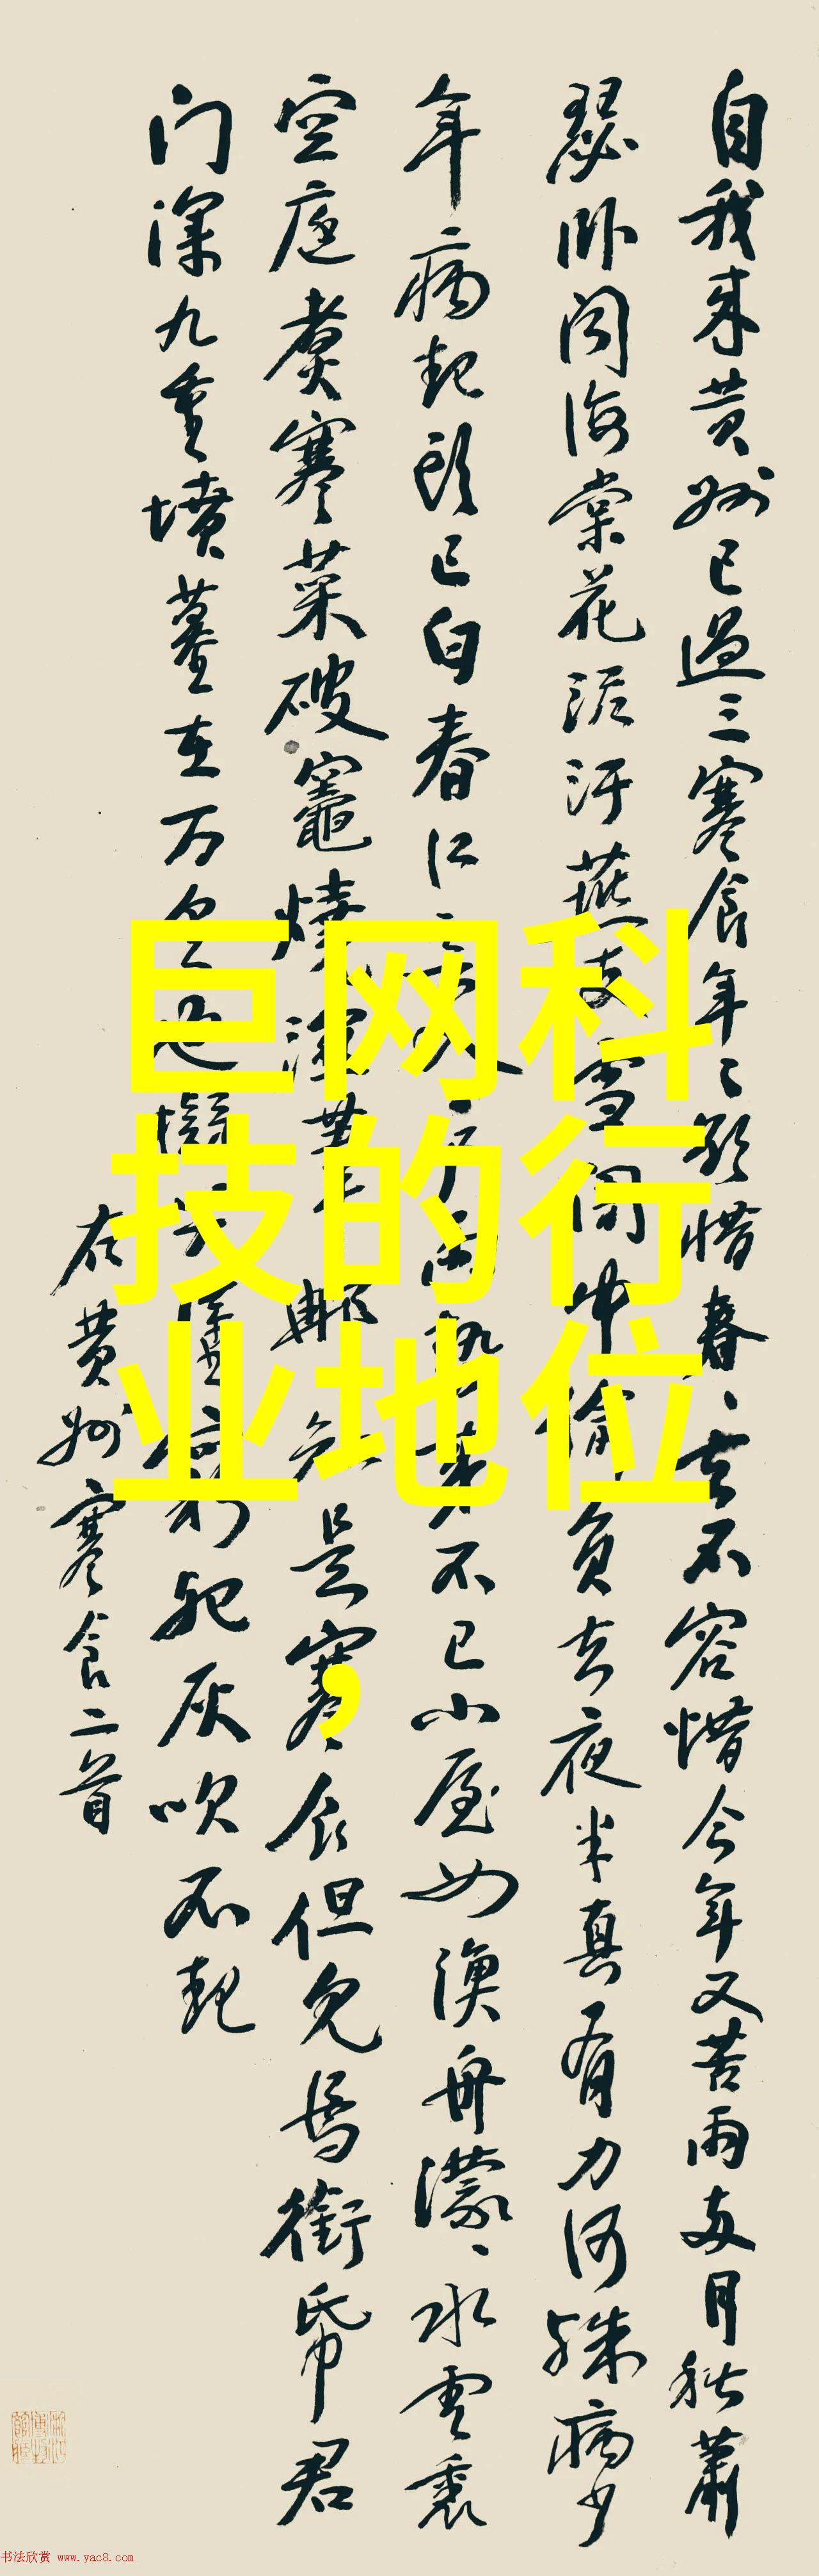 自我来黄州已過三寒食年〻欲惜春〻去不容惜今年又苦雨两月秋蕭
瑟卧闻海棠花泥汙燕支雪闇中偷負去夜半真有力何殊病少
年病起头已白春江欲入户雨势来不已小屋如漁舟濛〻水雲裏
空庖煮寒菜破竈燒湿葦那知是寒食但见烏銜帋君
门深九重墳墓在万里也擬哭塗窮死灰吹不起
在黄州寒食二首
巨网科
技的行
业地位
，
书法欣赏 www.yac8.com